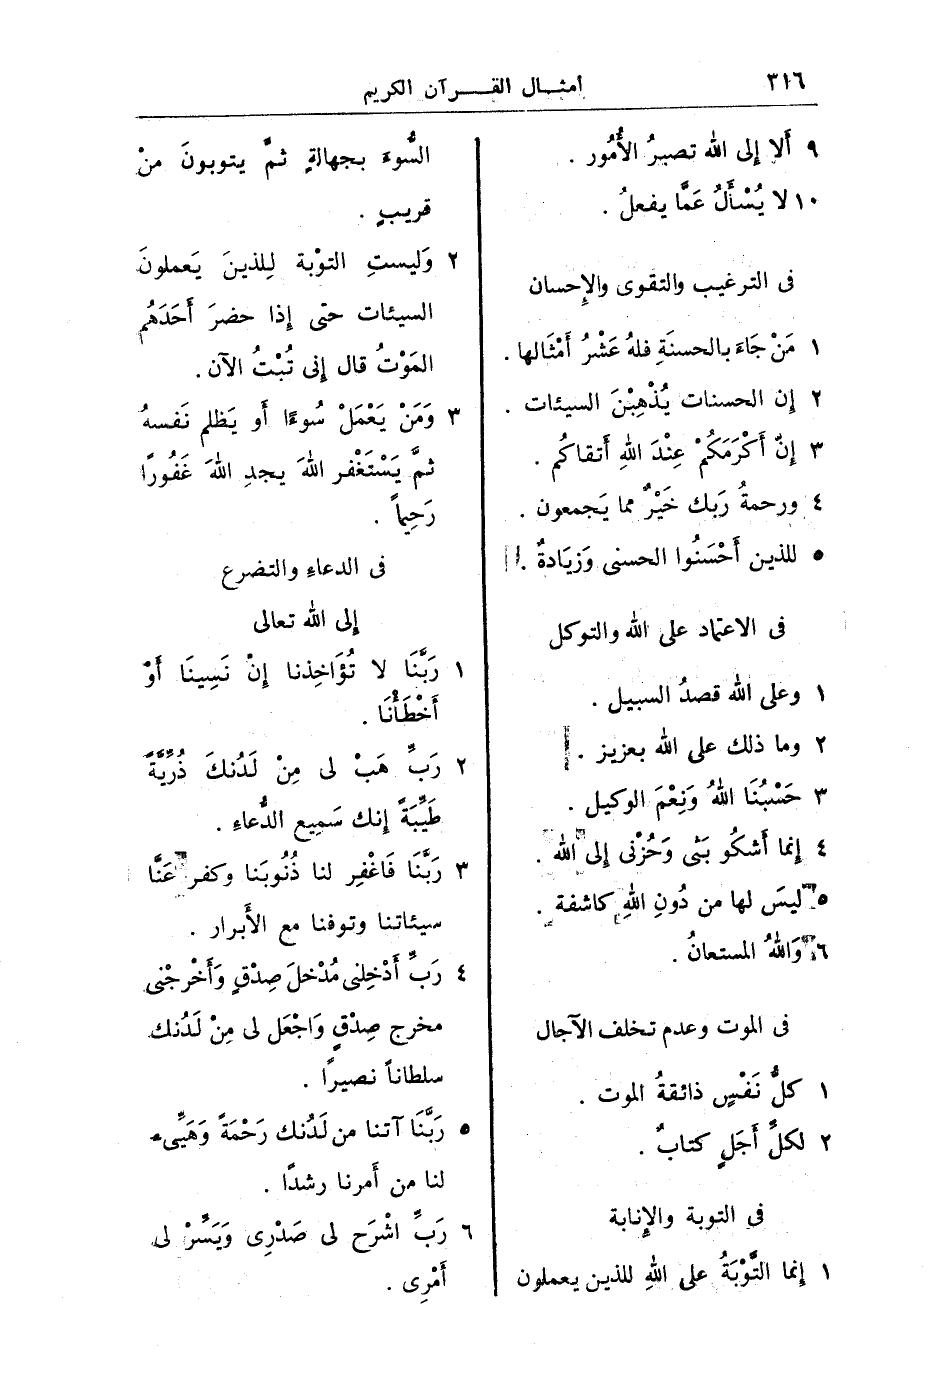 ٣١٦
أمثـــال القـــــرآن الكريم
٩ أَلا إلى الله تصيرُ الأُمُور .
١٠ لا يُسْأَلُ عَمَّا يفعلُ .
فى الترغيب والتقوى والإحسان
١ مَنْ جَاءَ بالحسنةِ فلهُ عَشْرُ أَمْثَالها .
٢ إن الحسنات يُذْهِبْنَ السيئات .
٣ إنَّ أَكْرَمَكُمْ عِنْدَ اللهِ أَتقاكُم .
٤ ورحمةُ رَبك خَيْرٌ مما يَجمعون .
٥ للذين أَحْسَنُوا الحسنى وَزيَادةٌ .
فى الاعتماد على الله والتوكل
١ وعلى الله قصدُ السبيل .
٢ وما ذلك على الله بعزيز .
٣ حَسْبُنَا اللهُ وَنِعْمَ الوكيل .
٤ إنما أَشكُو بَثى وَحُزْنى إلى الله .
٥ ليسَ لها من دُونِ اللهِ كاشفة .
٦ وَاللهُ المستعانُ .
فى الموت وعدم تخلف الآجال
١ كلُّ نَفْسٍ ذائقةُ الموت .
٢ لكلِّ أَجَلٍ كتابٌ .
فى التوبة والإنابة
١ إنما التَّوْبَةُ على اللهِ للذين يعملون
السُّوءَ بجهالةٍ ثمَّ يتوبونَ منْ
قريبٍ .
٢ وَليستِ التوْبة لِلذينَ يَعملونَ
السيئات حتى إذا حضرَ أَحَدَهُم
المَوْتُ قال إنى تُبْتُ الآن .
٣ وَمَنْ يَعْمَلْ سُوءًا أو يَظلم نَفسهُ
ثمَّ يَسْتَغْفر اللهَ يجدِ اللهَ غَفُورًا
رَحِيماً .
فى الدعاءِ والتضرع
إلى الله تعالى
١ رَبَّنَا لا تُؤَاخِذنا إنْ نَسِينَا أَوْ
أَخْطَأْنَا .
٢ رَبِّ هَبْ لى مِنْ لَدُنكَ ذُرِّيَّةً
طَيِّبَةً إنك سَمِيع الدُّعاءِ .
٣ رَبَّنَا فَاغْفِر لنا ذُنُوبَنا وكفر عَنَّا
سيئاتنا وتوفنا مع الأَبرار .
٤ رَبِّ أَدْخِلنى مُدْخلَ صِدْقٍ وَأَخْرِجْنى
مخرج صِدْقٍ وَاجْعَل لى مِنْ لَدُنك
سلطاناً نصيرًا .
٥ رَبَّنَا آتنا من لَدُنك رَحْمَةً وَهَيِّىء
لنا من أَمرنا رشدًا .
٦ رَبِّ اشْرَح لى صَدْرِى وَيَسِّرْ لى
أَمْرِى .